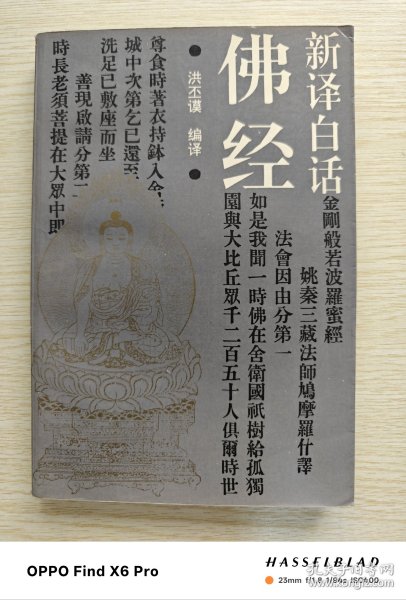 新译白话
佛经
●洪丕谟 编译●
金剛般若波羅蜜經
姚秦三藏法師鳩摩羅什譯
法會因由分第一
如是我聞一時佛在舍衛國祇樹給孤獨
園與大比丘眾千二百五十人俱爾時世
尊食時著衣持鉢入舍
城中次第乞已還至
洗足已敷座而坐
善現啟請分第二
時長老須菩提在大眾中即
OPPO Find X6 Pro
HASSELBLAD
23mm f/1.8 1/86s ISO400
孔夫子旧书网